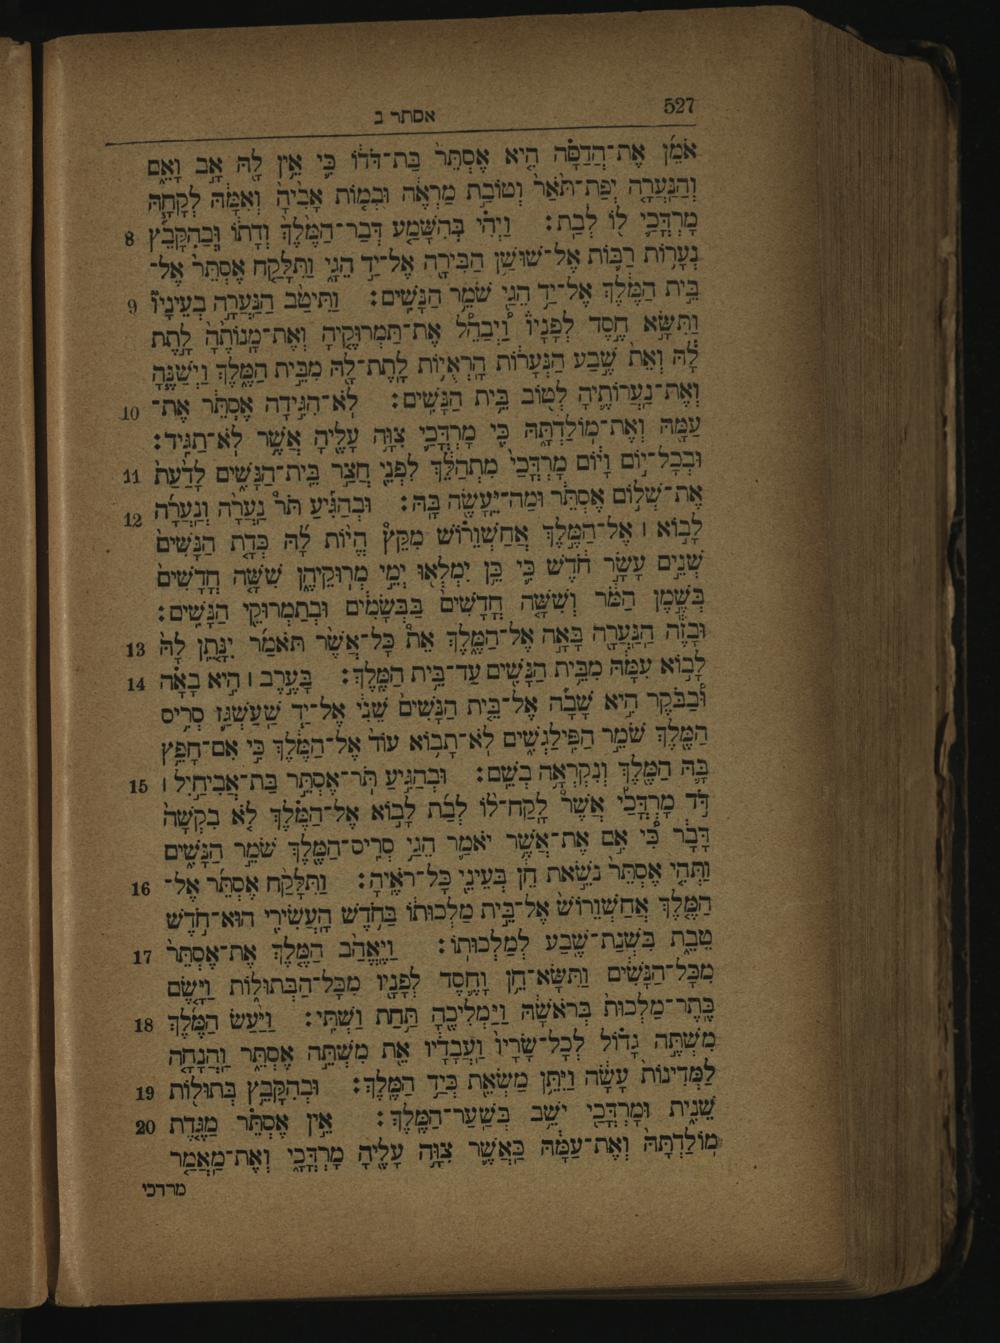 527 אסתר ב
אֹמֵ֨ן אֶת־הֲדַסָּ֜ה הִ֤יא אֶסְתֵּר֙ בַּת־דֹּד֔וֹ כִּ֛י אֵ֥ין לָ֖הּ אָ֣ב וָאֵ֑ם
וְהַנַּעֲרָ֤ה יְפַת־תֹּ֙אַר֙ וְטוֹבַ֣ת מַרְאֶ֔ה וּבְמ֤וֹת אָבִ֙יהָ֙ וְאִמָּ֔הּ לְקָחָ֧הּ
מָרְדֳּכַ֛י ל֖וֹ לְבַֽת׃ וַיְהִ֗י בְּהִשָּׁמַ֤ע דְּבַר־הַמֶּ֙לֶךְ֙ וְדָת֔וֹ וּֽבְהִקָּבֵ֞ץ 8
נְעָר֥וֹת רַבּ֛וֹת אֶל־שׁוּשַׁ֥ן הַבִּירָ֖ה אֶל־יַ֣ד הֵגָ֑י וַתִּלָּקַ֤ח אֶסְתֵּר֙ אֶל־
בֵּ֣ית הַמֶּ֔לֶךְ אֶל־יַ֥ד הֵגַ֖י שֹׁמֵ֥ר הַנָּשִֽׁים׃ וַתִּיטַ֨ב הַנַּעֲרָ֣ה בְעֵינָיו֮ 9
וַתִּשָּׂ֣א חֶ֣סֶד לְפָנָיו֒ וַ֠יְבַהֵל אֶת־תַּמְרוּקֶ֤יהָ וְאֶת־מָנוֹתֶ֙הָ֙ לָתֵ֣ת
לָ֔הּ וְאֵת֙ שֶׁ֣בַע הַנְּעָר֔וֹת הָרְאֻי֥וֹת לָֽתֶת־לָ֖הּ מִבֵּ֣ית הַמֶּ֑לֶךְ וַיְשַׁנֶּ֧הָ
וְאֶת־נַעֲרוֹתֶ֛יהָ לְט֖וֹב בֵּ֥ית הַנָּשִֽׁים׃ לֹא־הִגִּ֣ידָה אֶסְתֵּ֔ר אֶת־ 10
עַמָּ֖הּ וְאֶת־מֽוֹלַדְתָּ֑הּ כִּ֧י מָרְדֳּכַ֛י צִוָּ֥ה עָלֶ֖יהָ אֲשֶׁ֥ר לֹא־תַגִּֽיד׃
וּבְכָל־י֣וֹם וָי֔וֹם מָרְדֳּכַי֙ מִתְהַלֵּ֔ךְ לִפְנֵ֖י חֲצַ֣ר בֵּית־הַנָּשִׁ֑ים לָדַ֙עַת֙ 11
אֶת־שְׁל֣וֹם אֶסְתֵּ֔ר וּמַה־יֵּעָשֶׂ֖ה בָּֽהּ׃ וּבְהַגִּ֡יעַ תֹּר֩ נַעֲרָ֨ה וְנַעֲרָ֜ה 12
לָב֣וֹא ׀ אֶל־הַמֶּ֣לֶךְ אֲחַשְׁוֵר֗וֹשׁ מִקֵּץ֩ הֱי֨וֹת לָ֜הּ כְּדָ֤ת הַנָּשִׁים֙
שְׁנֵ֣ים עָשָׂ֣ר חֹ֔דֶשׁ כִּ֛י כֵּ֥ן יִמְלְא֖וּ יְמֵ֣י מְרוּקֵיהֶ֑ן שִׁשָּׁ֤ה חֳדָשִׁים֙
בְּשֶׁ֣מֶן הַמֹּ֔ר וְשִׁשָּׁ֤ה חֳדָשִׁים֙ בַּבְּשָׂמִ֔ים וּבְתַמְרוּקֵ֖י הַנָּשִֽׁים׃
וּבָזֶ֕ה הַֽנַּעֲרָ֖ה בָּאָ֣ה אֶל־הַמֶּ֑לֶךְ אֵת֩ כָּל־אֲשֶׁ֨ר תֹּאמַ֜ר יִנָּ֤תֵֽן לָהּ֙ 13
לָב֣וֹא עִמָּ֔הּ מִבֵּ֥ית הַנָּשִׁ֖ים עַד־בֵּ֥ית הַמֶּֽלֶךְ׃ בָּעֶ֣רֶב ׀ הִ֣יא בָאָ֗ה 14
וּ֠בַבֹּקֶר הִ֣יא שָׁבָ֞ה אֶל־בֵּ֤ית הַנָּשִׁים֙ שֵׁנִ֔י אֶל־יַ֧ד שַֽׁעֲשְׁגַ֛ז סְרִ֥יס
הַמֶּ֖לֶךְ שֹׁמֵ֣ר הַפִּֽילַגְשִׁ֑ים לֹא־תָב֥וֹא עוֹד֙ אֶל־הַמֶּ֔לֶךְ כִּ֣י אִם־חָפֵ֥ץ
בָּ֛הּ הַמֶּ֖לֶךְ וְנִקְרְאָ֥ה בְשֵֽׁם׃ וּבְהַגִּ֣יעַ תֹּר־אֶסְתֵּ֣ר בַּת־אֲבִיחַ֣יִל ׀ 15
דֹּ֣ד מָרְדֳּכַ֡י אֲשֶׁר֩ לָקַֽח־ל֨וֹ לְבַ֜ת לָב֣וֹא אֶל־הַמֶּ֗לֶךְ לֹ֤א בִקְשָׁה֙
דָּבָ֔ר כִּ֠י אִ֣ם אֶת־אֲשֶׁ֥ר יֹאמַ֛ר הֵגַ֥י סְרִֽיס־הַמֶּ֖לֶךְ שֹׁמֵ֣ר הַנָּשִׁ֑ים
וַתְּהִ֤י אֶסְתֵּר֙ נֹשֵׂ֣את חֵ֔ן בְּעֵינֵ֖י כָּל־רֹאֶֽיהָ׃ וַתִּלָּקַ֨ח אֶסְתֵּ֜ר אֶל־ 16
הַמֶּ֤לֶךְ אֲחַשְׁוֵרוֹשׁ֙ אֶל־בֵּ֣ית מַלְכוּת֔וֹ בַּחֹ֥דֶשׁ הָעֲשִׂירִ֖י הוּא־חֹ֣דֶשׁ
טֵבֵ֑ת בִּשְׁנַת־שֶׁ֖בַע לְמַלְכוּתֽוֹ׃ וַיֶּאֱהַ֨ב הַמֶּ֤לֶךְ אֶת־אֶסְתֵּר֙ 17
מִכָּל־הַנָּשִׁ֔ים וַתִּשָּׂא־חֵ֥ן וָחֶ֛סֶד לְפָנָ֖יו מִכָּל־הַבְּתוּל֑וֹת וַיָּ֤שֶׂם
כֶּֽתֶר־מַלְכוּת֙ בְּרֹאשָׁ֔הּ וַיַּמְלִיכֶ֖הָ תַּ֥חַת וַשְׁתִּֽי׃ וַיַּ֨עַשׂ הַמֶּ֜לֶךְ 18
מִשְׁתֶּ֣ה גָד֗וֹל לְכָל־שָׂרָיו֙ וַעֲבָדָ֔יו אֵ֖ת מִשְׁתֵּ֣ה אֶסְתֵּ֑ר וַהֲנָחָ֤ה
לַמְּדִינוֹת֙ עָשָׂ֔ה וַיִּתֵּ֥ן מַשְׂאֵ֖ת כְּיַ֥ד הַמֶּֽלֶךְ׃ וּבְהִקָּבֵ֥ץ בְּתוּל֖וֹת 19
שֵׁנִ֑ית וּמָרְדֳּכַ֖י יֹשֵׁ֥ב בְּשַֽׁעַר־הַמֶּֽלֶךְ׃ אֵ֣ין אֶסְתֵּ֗ר מַגֶּ֤דֶת 20
מֽוֹלַדְתָּהּ֙ וְאֶת־עַמָּ֔הּ כַּאֲשֶׁ֛ר צִוָּ֥ה עָלֶ֖יהָ מָרְדֳּכָ֑י וְאֶת־מַאֲמַ֤ר
מרדכי